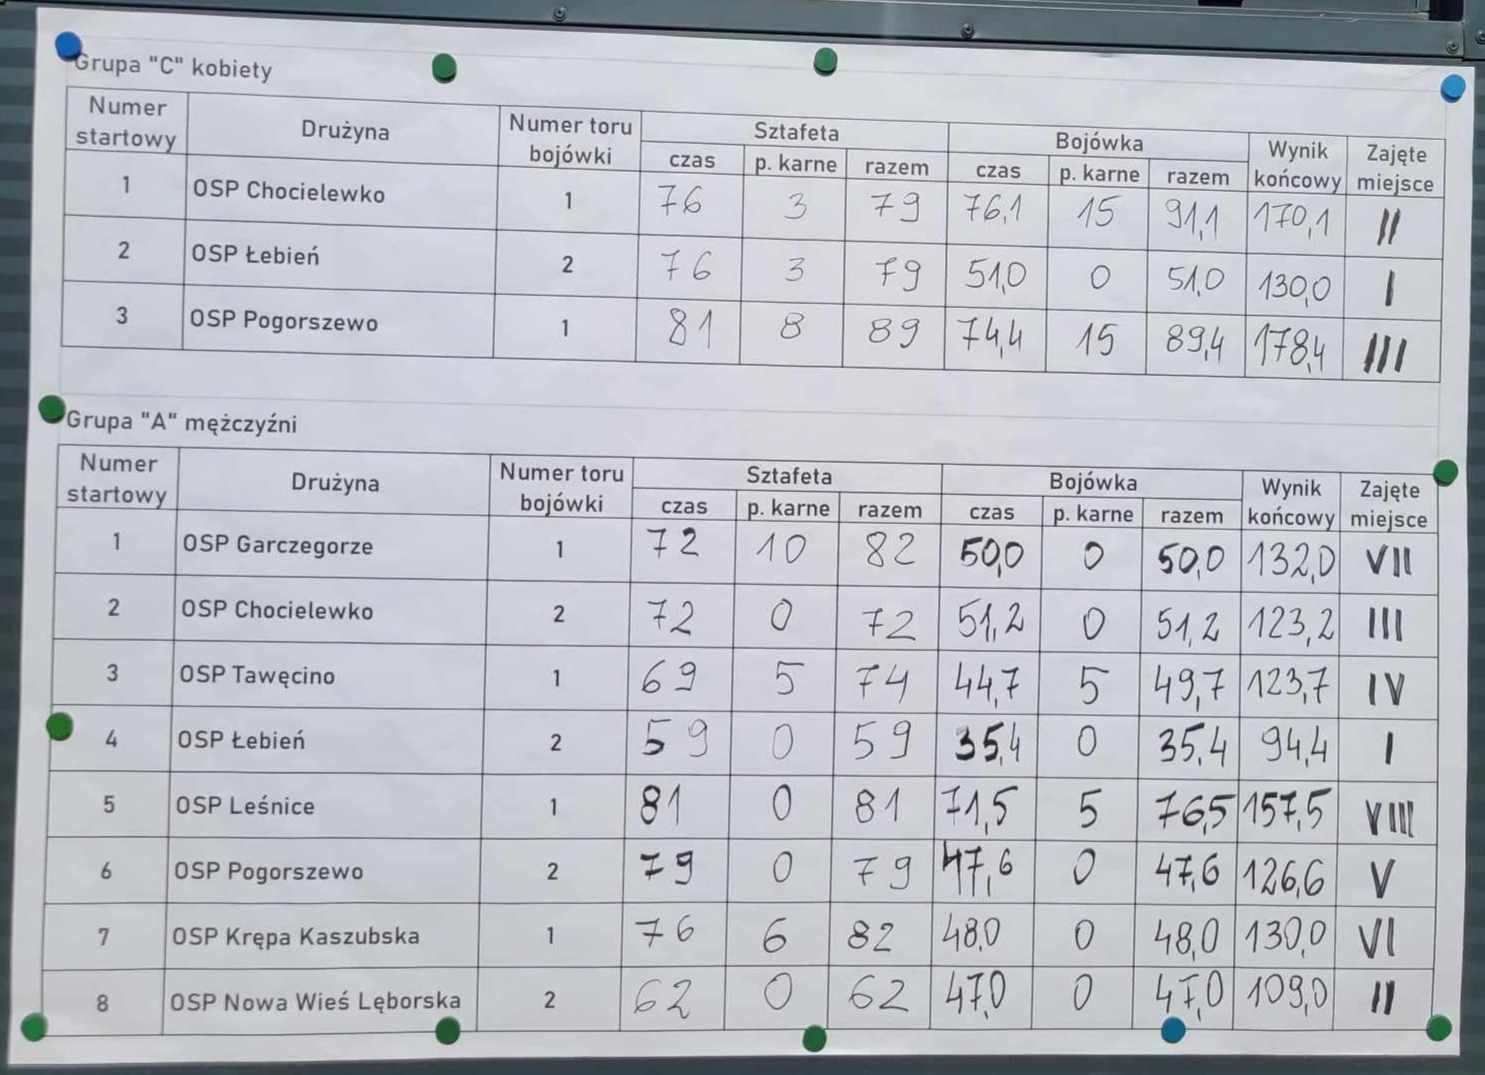 Grupa "C" kobiety
Numer startowy Drużyna Numer toru bojówki Sztafeta Bojówka Wynik końcowy Zajęte miejsce
czas p. karne razem czas p. karne razem
1 OSP Chocielewko 1 76 3 79 76,1 15 91,1 170,1 II
2 OSP Łebień 2 76 3 79 51,0 0 51,0 130,0 I
3 OSP Pogorszewo 1 81 8 89 74,4 15 89,4 178,4 III
Grupa "A" mężczyźni
Numer startowy Drużyna Numer toru bojówki Sztafeta Bojówka Wynik końcowy Zajęte miejsce
czas p. karne razem czas p. karne razem
1 OSP Garczegorze 1 72 10 82 50,0 0 50,0 132,0 VII
2 OSP Chocielewko 2 72 0 72 51,2 0 51,2 123,2 III
3 OSP Tawęcino 1 69 5 74 44,7 5 49,7 123,7 IV
4 OSP Łebień 2 59 0 59 35,4 0 35,4 94,4 I
5 OSP Leśnice 1 81 0 81 71,5 5 76,5 157,5 VIII
6 OSP Pogorszewo 2 79 0 79 47,6 0 47,6 126,6 V
7 OSP Krępa Kaszubska 1 76 6 82 48,0 0 48,0 130,0 VI
8 OSP Nowa Wieś Lęborska 2 62 0 62 47,0 0 47,0 109,0 II